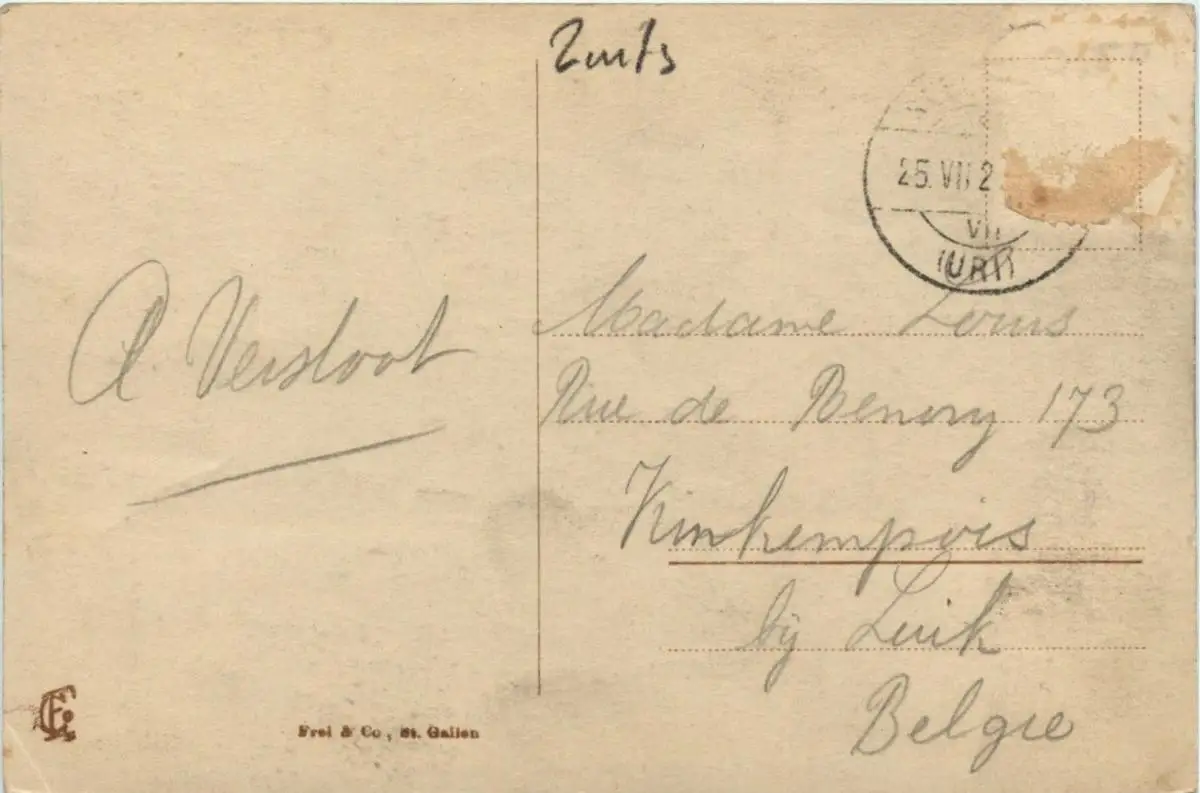 25. VII 2
VII
(URI)
A. Versloot
Madame Louis
Rue de Renory 173
Kinkempois
bij Luik
Belgie
Frei & Co., St. Gallen